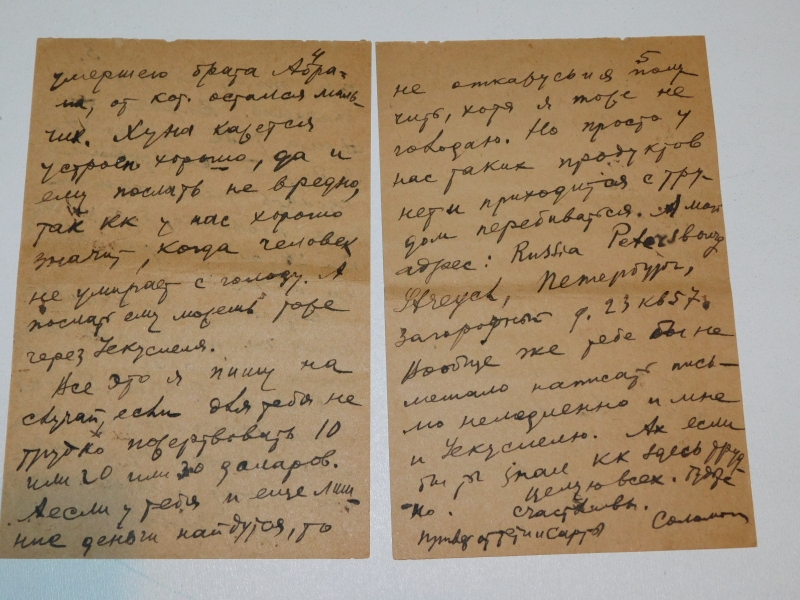 4
умершего брата Абра-
ма, от кот. остался маль-
чик. Хуна кажется
устроен хорошо, да и
ему послать не вредно,
так кк у нас хорошо
значит, когда человек
не умирает с голоду. А
послать ему можешь тоже
через Іекусиеля.
Все это я пишу на
случай, если для тебя не
трудно пожертвовать 10
или 20 или 30 доларов.
А если у тебя и еще лиш-
ние деньги найдутся, то
5
не откажусь и я полу
чить, хотя я тоже не
голодаю. Но просто у
нас таких продуктов
нет и приходится с тру-
дом перебиваться. А мой
адрес: Russia Petersbourg
Петербург,
Загородный д. 23 кв 57.
Вообще же тебе бы не
мешало написать пись-
мо немедленно и мне
и Іекусиелю. Ах если
бы ты знал кк здесь труд-
но. Целую всех. Будьте
счастливы.
Привет от тети и Сарры Соломон